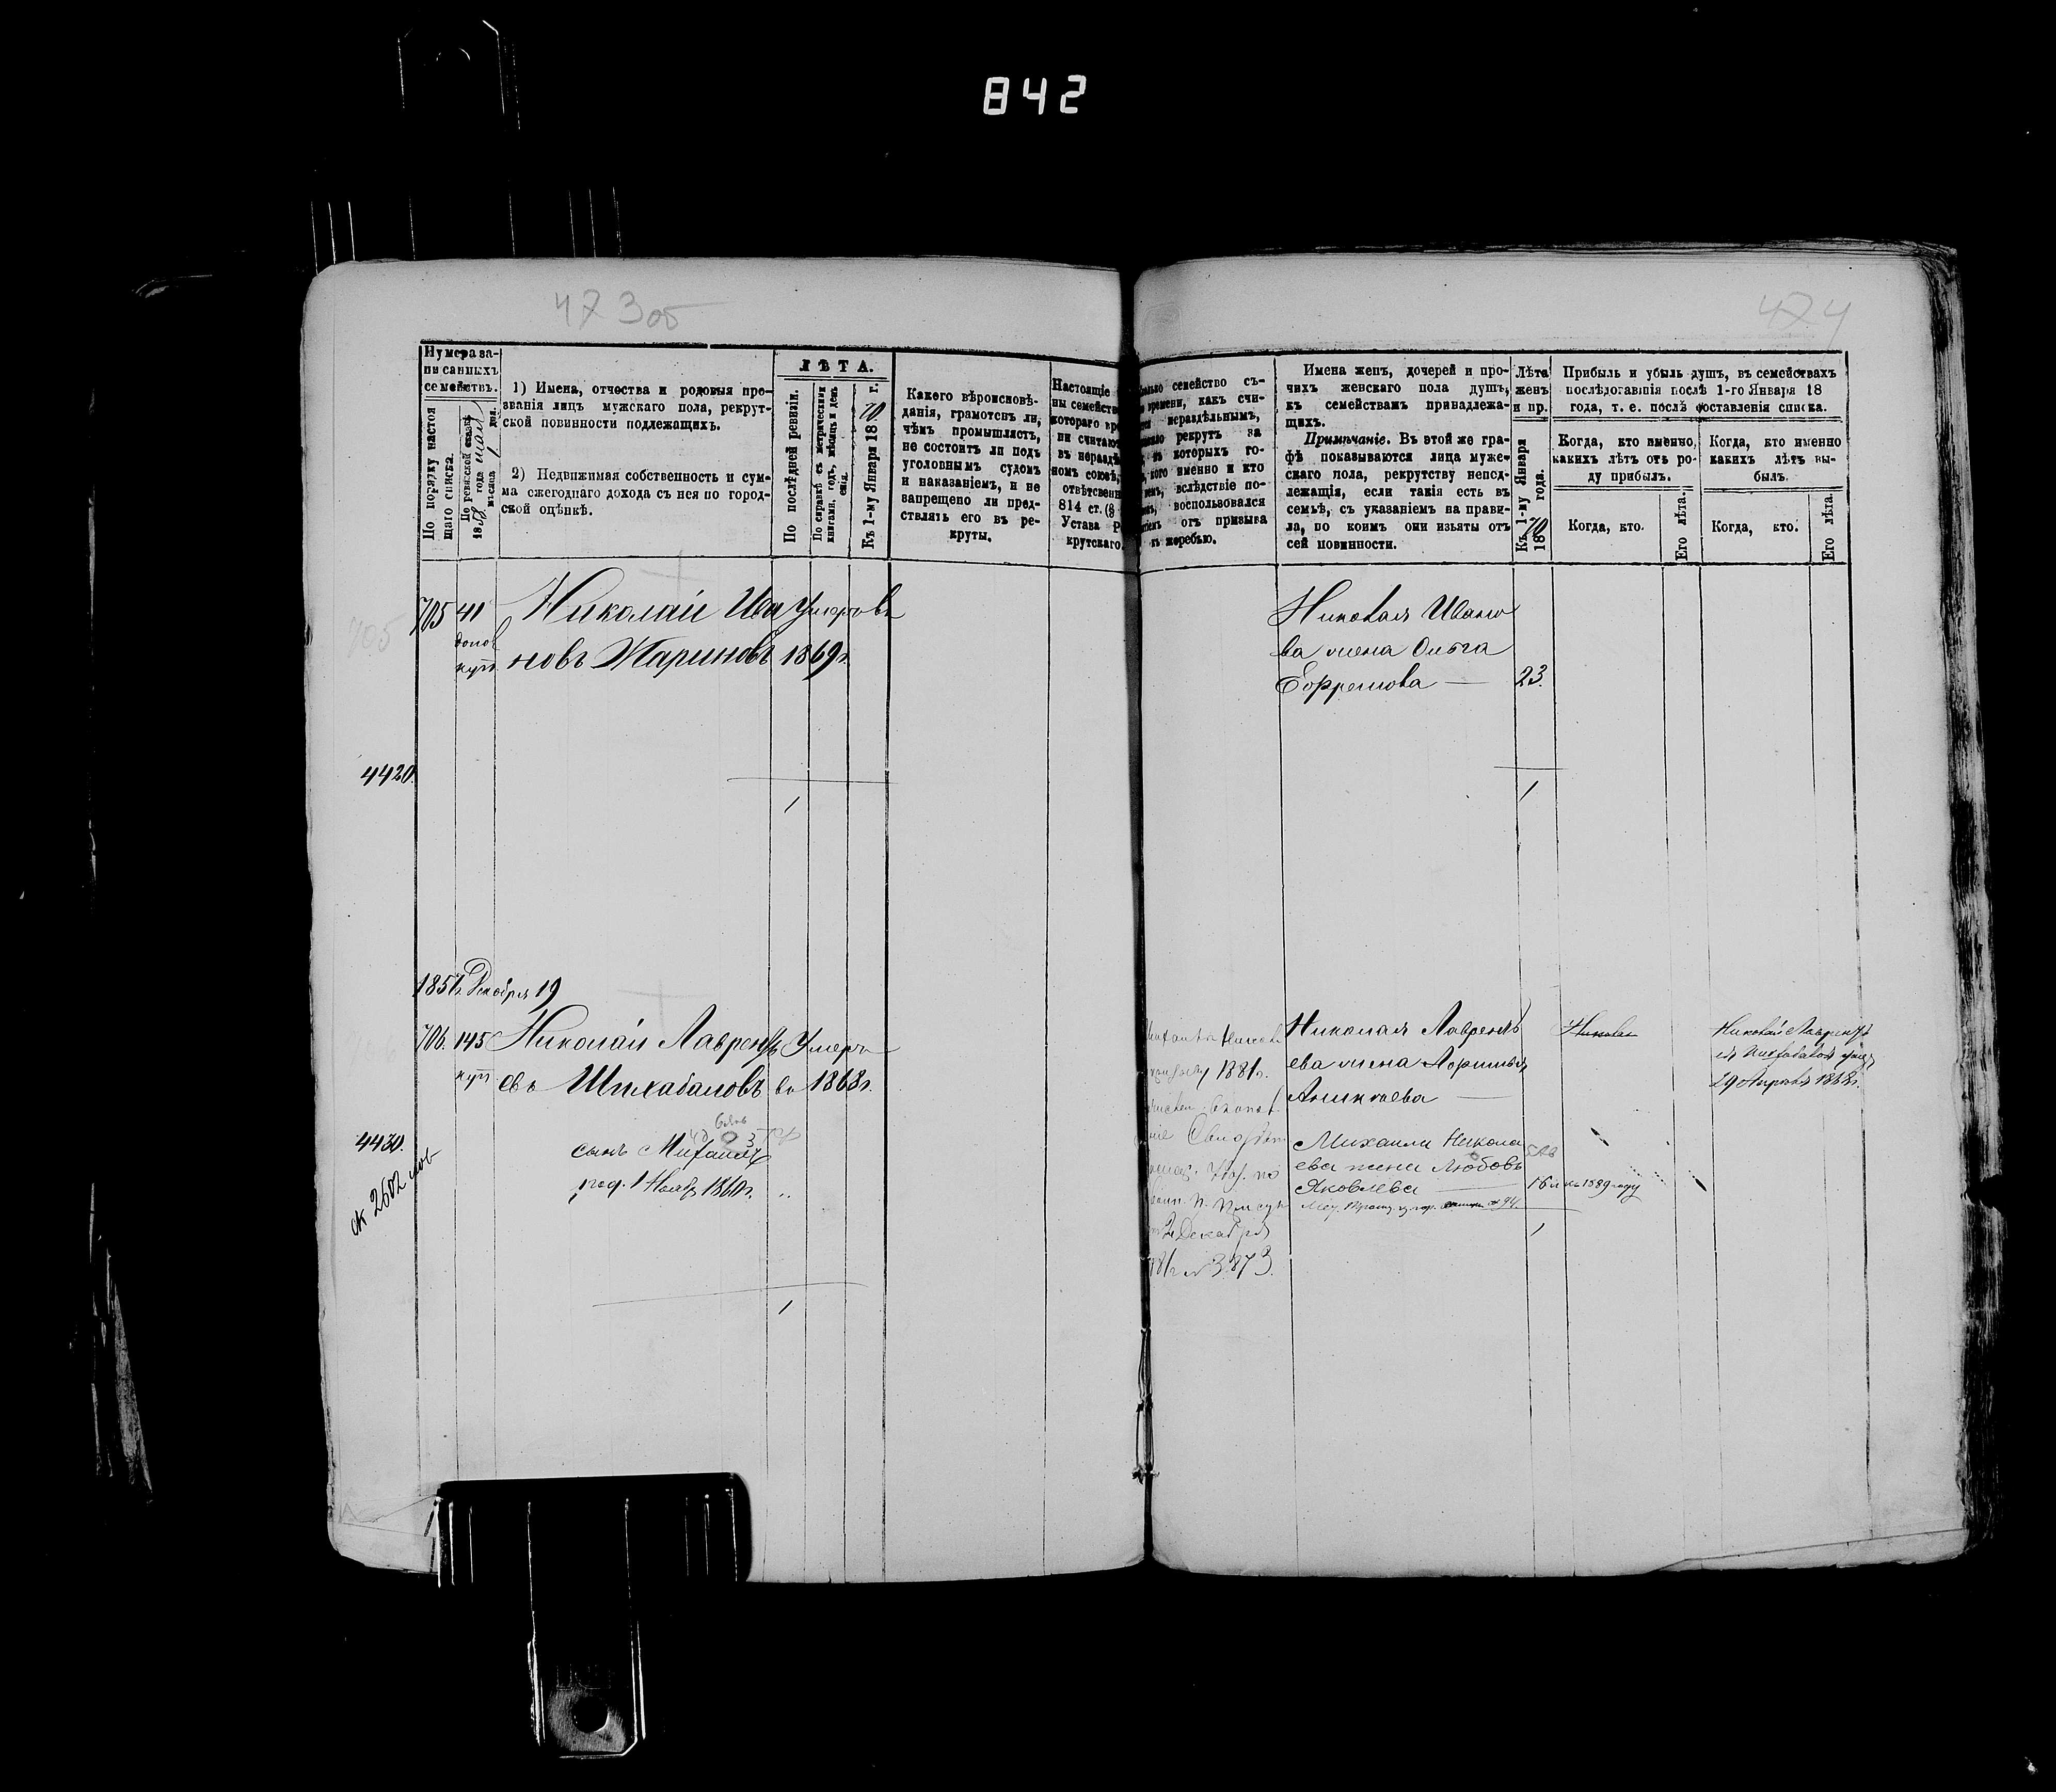 842
473об
474
Нумера за-
писанныхъ
семействъ.
По порядку настоя
щаго списка.
По ревизской сказкѣ
1858 года мая
мѣсяца 1 дня.
1) Имена, отчества и родовыя про-
званія лицъ мужскаго пола, рекрут-
ской повинности подлежащихъ.
2) Недвижимая собственность и сум-
ма ежегоднаго дохода съ нея по город-
ской оцѣнкѣ.
ЛѢТА.
По послѣдней ревизіи.
По справкѣ съ метрическими
книгами, годъ, мѣсяцъ и день
Къ 1-му Января 1870 г.
Какого вѣроисповѣ-
данія, грамотенъ ли,
чѣмъ промышляетъ,
не состоитъ ли подъ
уголовнымъ судомъ
и наказаніемъ, и не
запрещено ли пред-
ставлять его въ ре-
круты.
Настоящіе
ны семейства
котораго вре
ни считают
въ нераздѣ
номъ союзѣ,
отвѣтственн
814 ст. (§
Устава Р
крутскаго.
семейство съ-
времени, какъ счи-
нераздѣльнымъ,
рекрутъ за
которыхъ го-
кого именно и кто
вслѣдствіе по-
воспользовался
отъ призыва
къ жеребью.
Имена женъ, дочерей и про-
чихъ женскаго пола душъ,
къ семействамъ принадлежа-
щихъ.
Примѣчаніе. Въ этой же гра-
фѣ показываются лица муже-
скаго пола, рекрутству непод-
лежащія, если такія есть въ
семьѣ, съ указаніемъ на прави-
ла, по коимъ они изъяты отъ
сей повинности.
Лѣта
женъ
и пр.
Къ 1-му Января
1870 года.
Прибыль и убыль душъ, въ семействахъ
послѣдовавшія послѣ 1-го Января 18
года, т. е. послѣ составленія списка.
Когда, кто именно,
какихъ лѣтъ отъ ро-
ду прибылъ.
Когда, кто именно
какихъ лѣтъ вы-
былъ.
Когда, кто.
Его лѣта.
Когда, кто.
Его лѣта.
705
705 41 Николай Ива Умеръ въ
допол
куп новъ Жариновъ 1869г.
Николая Ивано
ва жена Ольга
Ефремова — 23.
4420.
1
1
1857г. Декабря 19
706. 145 Николай Лаврентъ Умеръ
куп евъ Шихабаловъ въ 1868г.
сынъ Михаилъ
род. 1 Ноябр 1860г. "
4430.
1
1881г.
Декабря
№ 3873.
Николая Лавренть
ева жена
Аникиева —
Михаила Никола
ева жена Любовь
Яковлева — 16 л къ 1889 году
1
Николай Лаврентъ
евъ Шихабаловъ
29 Апрѣля 1868г.